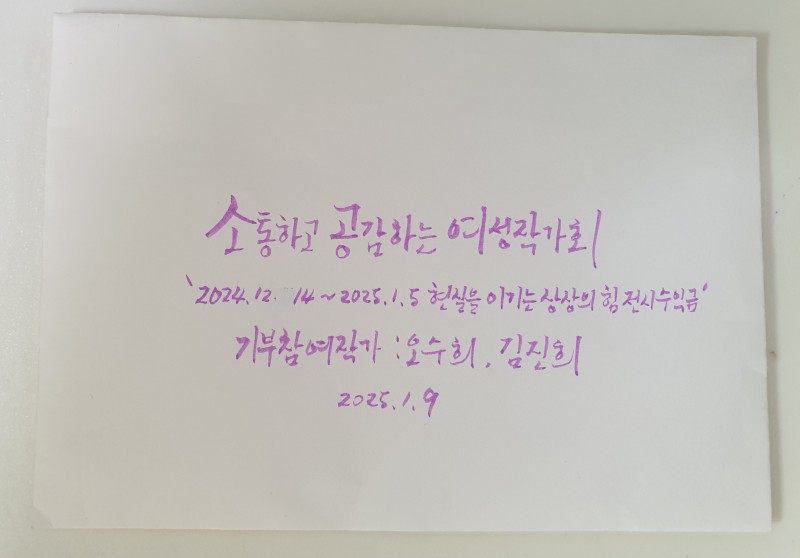 소통하고 공감하는 여성작가회
'2024.12. 14 ~ 2025.1.5 현실을 이기는 상상의 힘 전시수익금'
기부참여작가 : 오수희, 김진희
2025.1.9